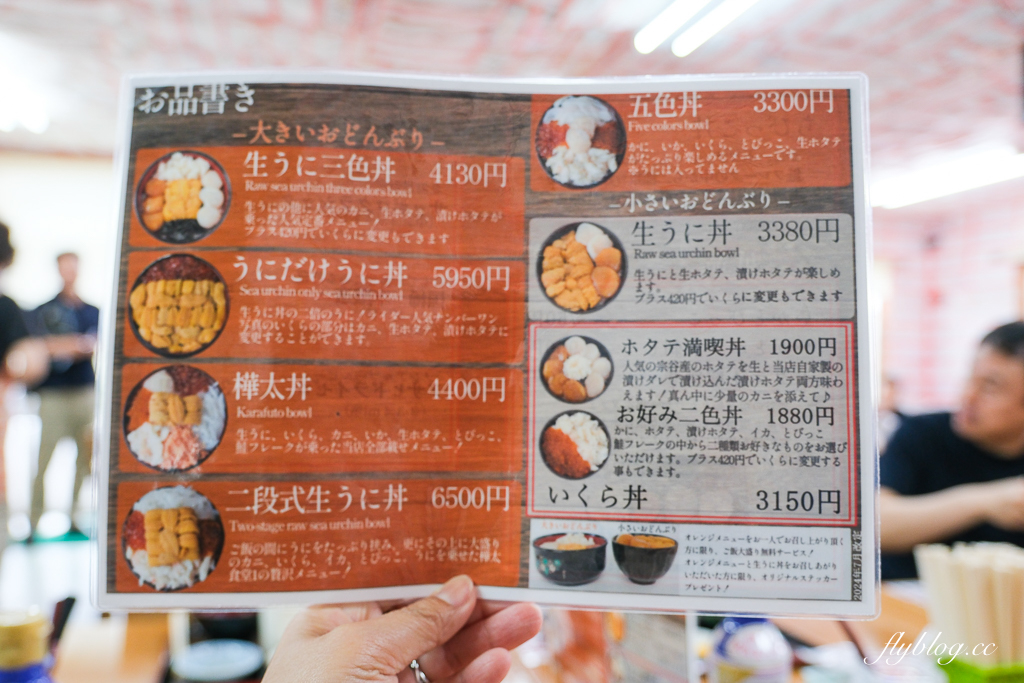 お品書き
－大きいおどんぶり－
生うに三色丼 4130円
Raw sea urchin three colors bowl
生うにの他に人気のカニ、生ホタテ、漬けホタテが
乗った人気定番メニュー！
プラス420円でいくらに変更もできます
うにだけうに丼 5950円
Sea urchin only sea urchin bowl
生うに丼の二倍のうに！ライダー人気ナンバーワン
写真のいくらの部分はカニ、生ホタテ、漬けホタテに
変更することができます。
樺太丼 4400円
Karafuto bowl
生うに、いくら、カニ、いか、生ホタテ、とびっこ、
鮭フレークが乗った当店全部載せメニュー！
二段式生うに丼 6500円
Two-stage raw sea urchin bowl
ご飯の間にうにをたっぷり挟み、更にその上に大盛り
のカニ、いくら、イカ、とびっこ、うにを乗せた樺太
食堂1の贅沢メニュー！
五色丼 3300円
Five colors bowl
かに、いか、いくら、とびっこ、生ホタテ
がたっぷり楽しめるメニューです。
※うには入ってません
－小さいおどんぶり－
生うに丼 3380円
Raw sea urchin bowl
生うにと生ホタテ、漬けホタテが楽しめ
ます。
プラス420円でいくらに変更もできます
ホタテ満喫丼 1900円
人気の宗谷産のホタテを生と当店自家製の
漬けダレで漬け込んだ漬けホタテ両方味わ
えます！真ん中に少量のカニを添えて♪
お好み二色丼 1880円
かに、ホタテ、漬けホタテ、イカ、とびっこ
鮭フレークの中から二種類お好きなものをお選び
いただけます。プラス420円でいくらに変更する
事もできます。
いくら丼 3150円
大きいおどんぶり 小さいおどんぶり
オレンジメニューをお一人でお召し上がり頂く
方に限り、ご飯大盛り無料サービス！
オレンジメニューと生うに丼をお召しあがり
いただいた方に限り、オリジナルステッカー
プレゼント！
flyblog.cc